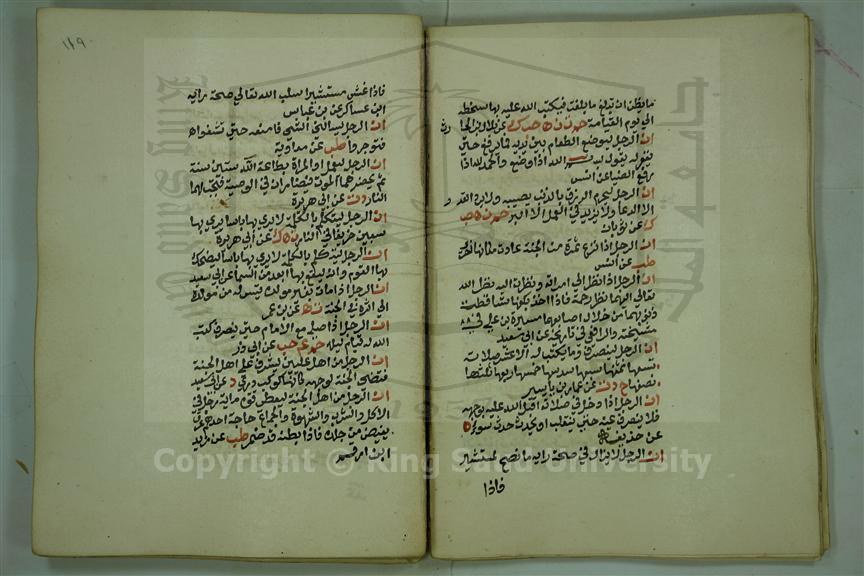 ما يظن ان تبلغ ما بلغت فيكتب الله عليه بها سخطه
الى يوم القيامة حم ت ن ه حب ك عن بلال بن الحا رث
ان الرجل ليوضع الطعام بين يديه فما يرفع حتى
يغفر له يقول بسم الله اذا وضع والحمد لله اذا
رفع الضيا عن انس
ان الرجل ليحرم الرزق بالذنب يصيبه ولا يرد القد ر
الا الدعا ولا يزيد في العمر الا البر حم ن ه حب
ك عن ثوبان
ان الرجل اذا نزع ثمرة من الجنة عادت مكانها اخرى
طب عن ثوبان
ان الرجل اذا نظر الى امراته ونظرت اليه نظر الله
تعالى اليهما نظر رحمة فاذا اخذ بكفها تساقطت
ذنوبهما من خلال اصابعهما ميسرة بن علي في
مشيخته والرافعي في تاريخه عن ابي سعيد
ان الرجل لينصرف وما يكتب له الا عشر صلاته
تسعها ثمنها سبعها سدسها خمسها ربعها ثلثها
نصفها حم د ن عن عمار بن ياسر
ان الرجل اذا دخل في صلاته اقبل الله عليه بوجهه
فلا ينصرف عنه حتى ينقلب او يحدث حدث سوء ه
عن حذيفة
ان الرجل لا يزال في صحة رايه ما نصح لمستشير
فاذا
١٤٩
فاذا غش مستشيرا سلب الله تعالى صحة رايه
ابن عساكر عن بن عباس
ان الرجل ليسالني الشي فامنعه حتى تشفعوا
فتوجروا طب عن معاوية
ان الرجل ليعمل او المراة بطاعة الله ستين سنة
ثم يحضرهما الموت فيضاران في الوصية فتجب لهما
النار د ت عن ابي هريرة
ان الرجل ليتكلم بالكلمة لا يرى بها باسا يهوي بها
سبعين خريفا في النار ت ه ك عن ابي هريرة
ان الرجل ليتكلم بالكلمة لا يرى بها باسا ليضحك
بها القوم وانه ليقع بها ابعد من السما عن ابي سعيد
ان الرجل اذا مات بغير مولده قيس له من مولده
الى اثره في الجنة ن ه عن بن عمر
ان الرجل اذا صلى مع الامام حتى ينصرف كتب
الله له قيام ليلة حم عم حب عن ابي ذر
ان الرجل من اهل عليين ليشرف على اهل الجنة
فتضي الجنة لوجهه كانها كوكب دري د عن ابي سعيد
ان الرجل من اهل الجنة ليعطى قوة ماية رجل في
الاكل والشرب والشهوة والجماع حاجة احدهم عرق
يفيض من جلده فاذا بطنه قد ضمر طب عن زيد
ابن ارقم
Copyright © King Saud University
جامعة الملك سعود
1957